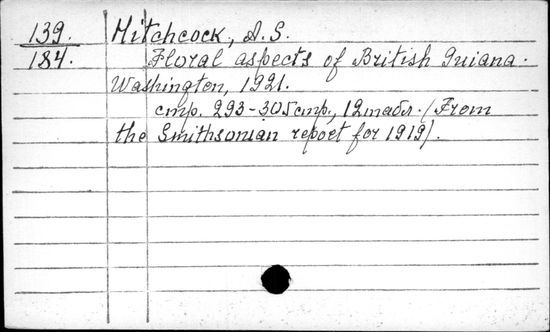 139. Hitchcock, A.S.
184. Floral aspects of British Guiana.
Washington, 1921.
стр. 293-305 стр., 12 табл. (From
the Smithsonian report for 1919).